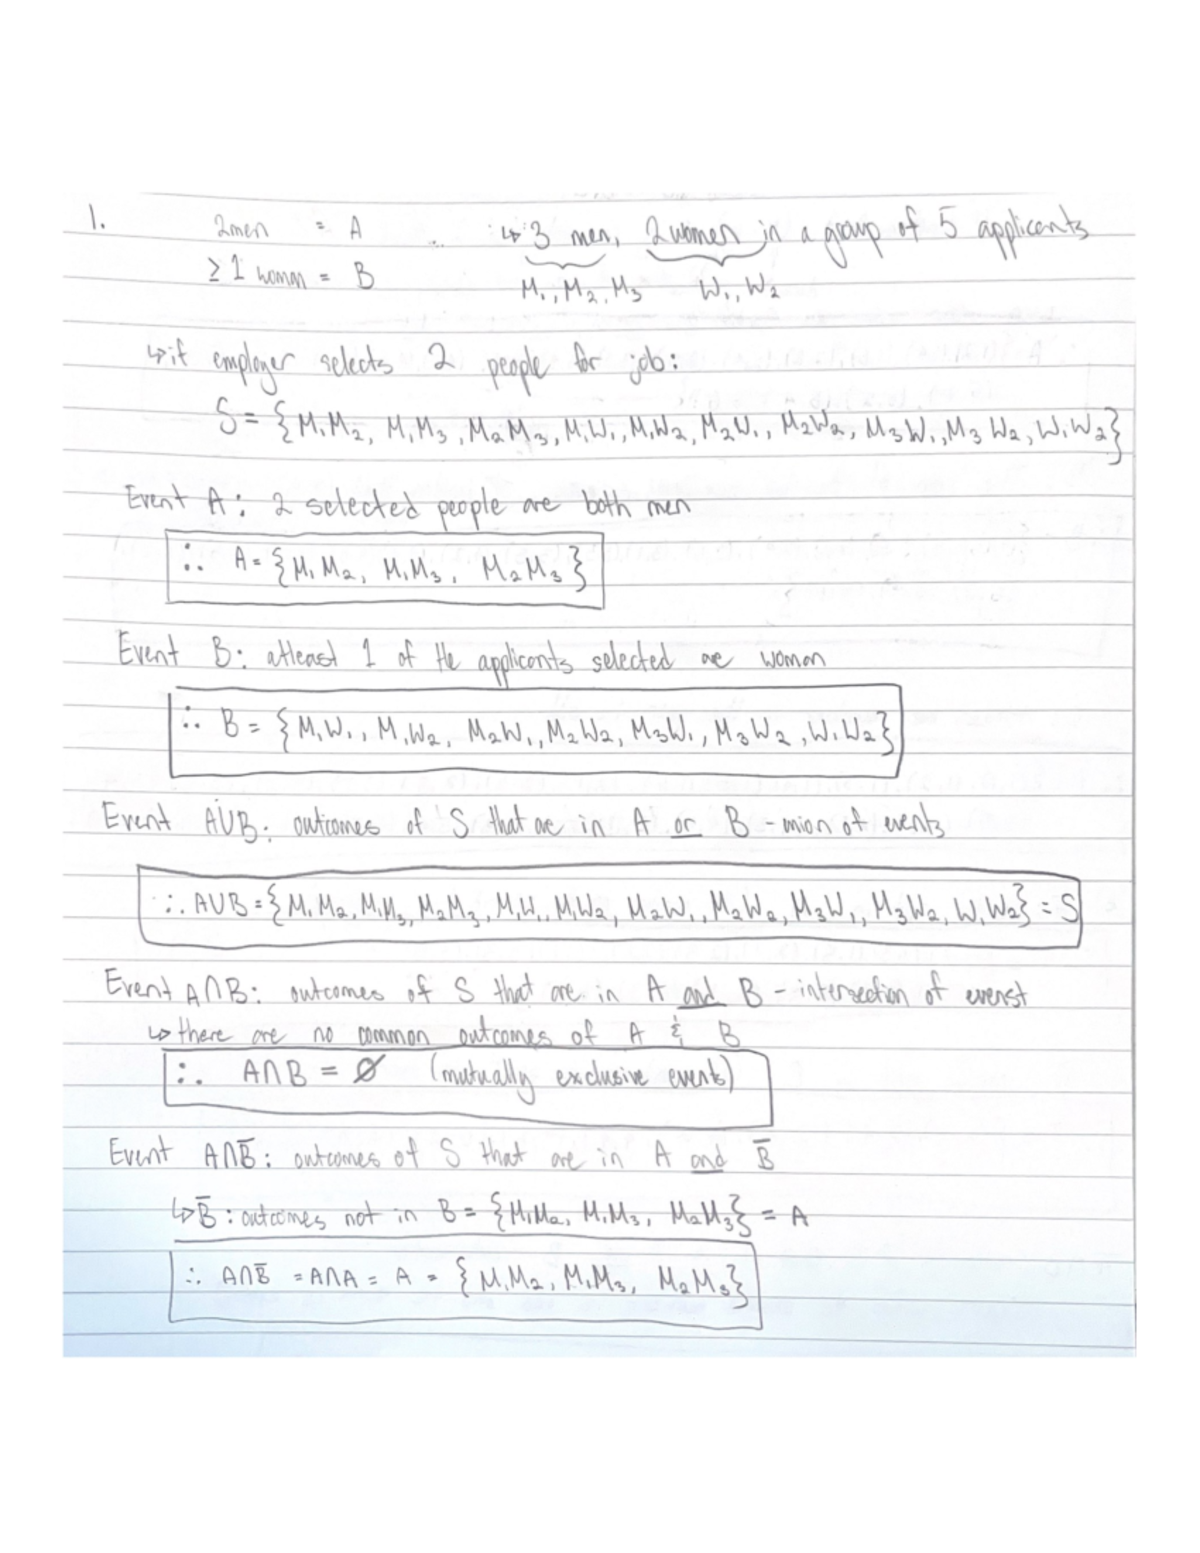 1. 2men = A ↳ 3 men, 2 women in a group of 5 applicants
≥ 1 woman = B M₁, M₂, M₃ W₁, W₂
↳ if employer selects 2 people for job:
S = {M₁M₂, M₁M₃, M₂M₃, M₁W₁, M₁W₂, M₂W₁, M₂W₂, M₃W₁, M₃W₂, W₁W₂}
Event A: 2 selected people are both men
∴ A = {M₁M₂, M₁M₃, M₂M₃}
Event B: atleast 1 of the applicants selected are woman
∴ B = {M₁W₁, M₁W₂, M₂W₁, M₂W₂, M₃W₁, M₃W₂, W₁W₂}
Event A∪B: outcomes of S that are in A or B - union of events
∴ A∪B = {M₁M₂, M₁M₃, M₂M₃, M₁W₁, M₁W₂, M₂W₁, M₂W₂, M₃W₁, M₃W₂, W₁W₂} = S
Event A∩B: outcomes of S that are in A and B - intersection of evenst
↳ there are no common outcomes of A & B
∴ A∩B = ∅ (mutually exclusive events)
Event A∩B̅: outcomes of S that are in A and B̅
↳ B̅: outcomes not in B = {M₁M₂, M₁M₃, M₂M₃} = A
∴ A∩B̅ = A∩A = A = {M₁M₂, M₁M₃, M₂M₃}